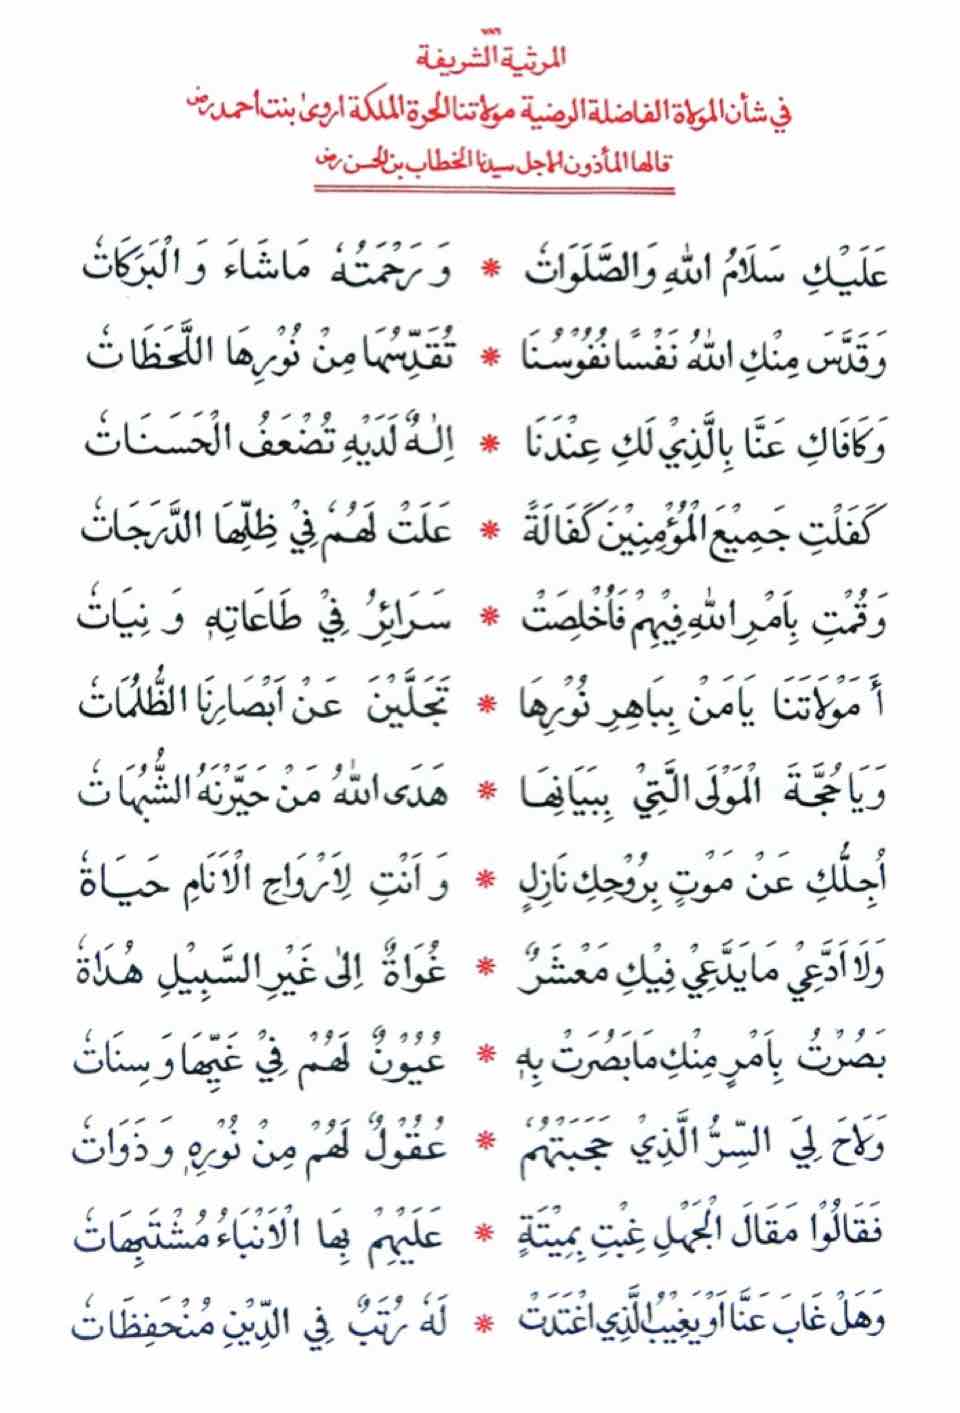 ٧٨٦
المرثية الشريفة
في شأن المولاة الفاضلة الرضية مولاتنا الحرة الملكة اروىٰ بنت احمد رض
قالها المأذون الاجل سيدنا الخطاب بن الحسن رض
عَلَيْكِ سَلَامُ اللهِ وَالصَّلَوَاتُ * وَرَحْمَتُهٗ مَاشَاءَ وَالْبَرَكَاتُ
وَقَدَّسَ مِنْكِ اللهُ نَفْسًا نُفُوْسُنَا * تُقَدِّسُهَا مِنْ نُوْرِهَا اللَّحَظَاتُ
وَكَافَاكِ عَنَّا بِالَّذِيْ لَكِ عِنْدَنَا * اِلٰهٌ لَدَيْهِ تُضْعَفُ الْحَسَنَاتُ
كَفَلْتِ جَمِيْعَ الْمُؤْمِنِيْنَ كَفَالَةً * عَلَتْ لَهُمُ فِيْ ظِلِّهَا الدَّرَجَاتُ
وَقُمْتِ بِاَمْرِ اللهِ فِيْهِمْ فَاُخْلِصَتْ * سَرَائِرُ فِيْ طَاعَاتِهٖ وَنِيَاتُ
أَمَوْلَاتَنَا يَامَنْ بِبَاهِرِ نُوْرِهَا * تَجَلَّيْنَ عَنْ اَبْصَارِنَا الظُّلُمَاتُ
وَيَا حُجَّةَ الْمَوْلَى الَّتِيْ بِبَيَانِهَا * هَدَى اللهُ مَنْ حَيَّرْنَهُ الشُّبُهَاتُ
اُجِلُّكِ عَنْ مَوْتٍ بِرُوْحِكِ نَازِلٍ * وَاَنْتِ لِاَرْوَاحِ الْاَنَامِ حَيَاةُ
وَلَا اَدَّعِيْ مَا يَدَّعِيْ فِيْكِ مَعْشَرٌ * غُوَاةٌ اِلىٰ غَيْرِ السَّبِيْلِ هُدَاةُ
بَصُرْتُ بِاَمْرٍ مِنْكِ مَا بَصُرَتْ بِهٖ * عُيُوْنٌ لَهُمْ فِيْ غَيِّهَا وَسِنَاتُ
وَلَاحَ لِيَ السِّرُّ الَّذِيْ حَجَبَتْهُمُ * عُقُوْلٌ لَهُمْ مِنْ نُوْرِهٖ وَذَوَاتُ
فَقَالُوْا مَقَالَ الْجَهْلِ غِبْتِ بِمِيْتَةٍ * عَلَيْهِمْ بِهَا الْاَنْبَاءُ مُشْتَبِهَاتُ
وَهَلْ غَابَ عَنَّا اَوْ يَغِيْبُ الَّذِي اغْتَدَتْ * لَهٗ رُتَبٌ فِي الدِّيْنِ مُنْحَفِظَاتُ